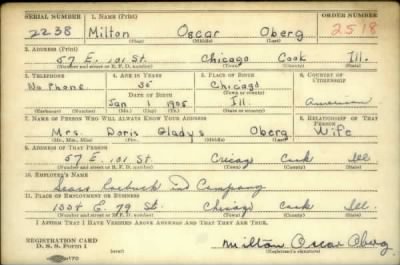 SERIAL NUMBER 1. NAME (Print) ORDER NUMBER
2238 Milton Oscar Oberg 2518
(First) (Middle) (Last)
2. ADDRESS (Print)
57 E. 101 St. Chicago Cook Ill.
(Number and street or R. F. D. number) (Town) (County) (State)
3. TELEPHONE 4. AGE IN YEARS 5. PLACE OF BIRTH 6. COUNTRY OF CITIZENSHIP
No Phone 35 Chicago
DATE OF BIRTH
Jan 1 1905 Ill. American
(Exchange) (Number) (Mo.) (Day) (Yr.) (State or country)
7. NAME OF PERSON WHO WILL ALWAYS KNOW YOUR ADDRESS 8. RELATIONSHIP OF THAT PERSON
Mrs. Doris Gladys Oberg Wife
(Mr., Mrs., Miss) (First) (Middle) (Last)
9. ADDRESS OF THAT PERSON
57 E. 101 St. Chicago Cook Ill
(Number and street or R. F. D. number) (Town) (County) (State)
10. EMPLOYER'S NAME
Sears Roebuck and Company
11. PLACE OF EMPLOYMENT OR BUSINESS
1334 E. 79 St. Chicago Cook Ill.
(Number and street or R. F. D. number) (Town) (County) (State)
I AFFIRM THAT I HAVE VERIFIED ABOVE ANSWERS AND THAT THEY ARE TRUE.
REGISTRATION CARD
D. S. S. Form 1 (over) Milton Oscar Oberg
(Registrant's signature)